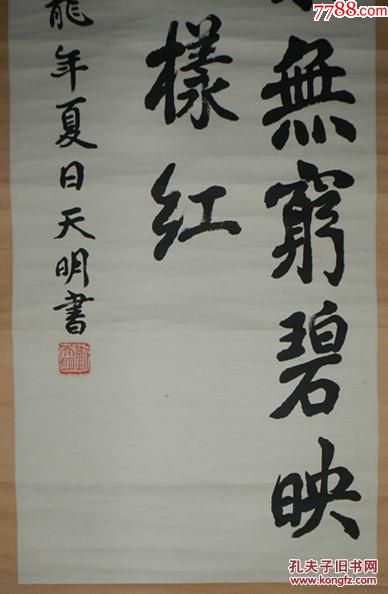 無窮碧映
樣红
年夏日天明書
7788.com
孔夫子旧书网
www.kongfz.com